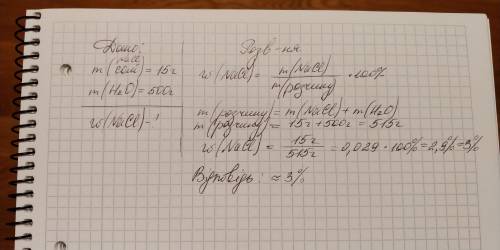 Дано:
m(NaCl солі) = 15г
m(H₂O) = 500г
w(NaCl) - ?
Розв-ня
w(NaCl) = m(NaCl) / m(розчину) · 100%
m(розчину) = m(NaCl) + m(H₂O)
m(розчину) = 15г + 500г = 515г
w(NaCl) = 15г / 515г = 0,029 · 100% = 2,9% = 3%
Відповідь: ≈ 3%